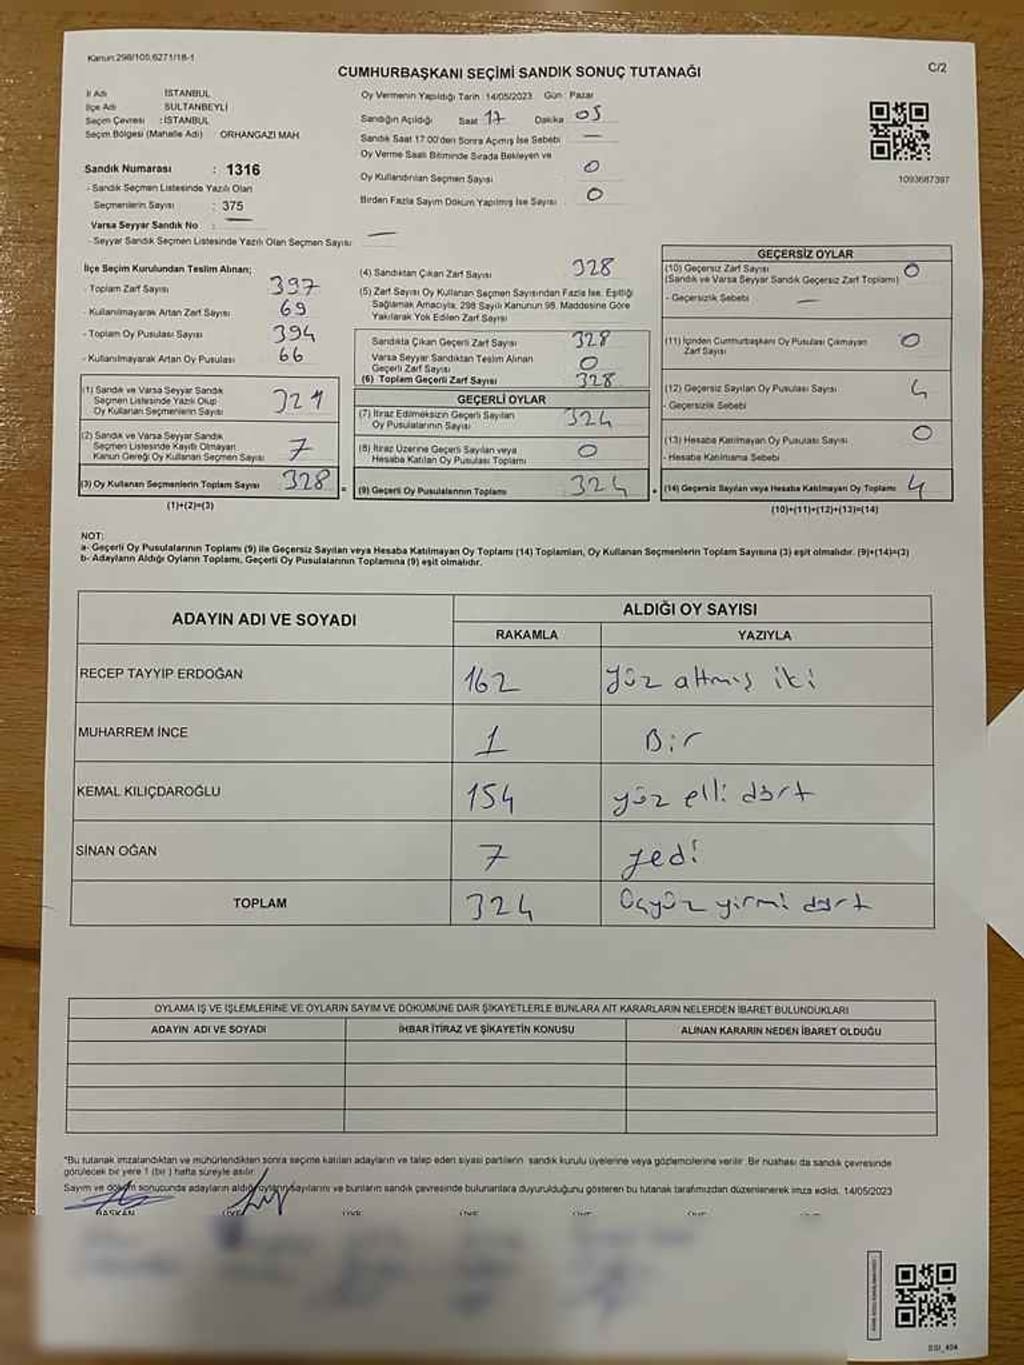 Kanun:298/105,6271/18-1
C/2
CUMHURBAŞKANI SEÇİMİ SANDIK SONUÇ TUTANAĞI
İl Adı : İSTANBUL
İlçe Adı : SULTANBEYLİ
Seçim Çevresi : İSTANBUL
Seçim Bölgesi (Mahalle Adı) ORHANGAZI MAH.
Sandık Numarası : 1316
- Sandık Seçmen Listesinde Yazılı Olan
Seçmenlerin Sayısı : 375
Varsa Seyyar Sandık No : —
- Seyyar Sandık Seçmen Listesinde Yazılı Olan Seçmen Sayısı : —
Oy Vermenin Yapıldığı Tarih :14/05/2023 Gün : Pazar
Sandığın Açıldığı Saat 17 Dakika 05
Sandık Saat 17:00'den Sonra Açmış İse Sebebi —
Oy Verme Saati Bitiminde Sırada Bekleyen ve
Oy Kullandırılan Seçmen Sayısı : 0
Birden Fazla Sayım Döküm Yapılmış İse Sayısı : 0
1093687397
İlçe Seçim Kurulundan Teslim Alınan;
- Toplam Zarf Sayısı : 397
- Kullanılmayarak Artan Zarf Sayısı : 69
- Toplam Oy Pusulası Sayısı : 394
- Kullanılmayarak Artan Oy Pusulası : 66
(1) Sandık ve Varsa Seyyar Sandık
Seçmen Listesinde Yazılı Olup
Oy Kullanan Seçmenlerin Sayısı 321
(2) Sandık ve Varsa Seyyar Sandık
Seçmen Listesinde Kayıtlı Olmayan
Kanun Gereği Oy Kullanan Seçmen Sayısı 7
(3) Oy Kullanan Seçmenlerin Toplam Sayısı 328
(1)+(2)=(3)
(4) Sandıktan Çıkan Zarf Sayısı 328
(5) Zarf Sayısı Oy Kullanan Seçmen Sayısından Fazla İse, Eşitliği
Sağlamak Amacıyla, 298 Sayılı Kanunun 98. Maddesine Göre
Yakılarak Yok Edilen Zarf Sayısı
Sandıkta Çıkan Geçerli Zarf Sayısı 328
Varsa Seyyar Sandıktan Teslim Alınan
Geçerli Zarf Sayısı 0
(6) Toplam Geçerli Zarf Sayısı 328
GEÇERLİ OYLAR
(7) İtiraz Edilmeksizin Geçerli Sayılan
Oy Pusulalarının Sayısı 324
(8) İtiraz Üzerine Geçerli Sayılan veya
Hesaba Katılan Oy Pusulası Toplamı 0
(9) Geçerli Oy Pusulalarının Toplamı 324
GEÇERSİZ OYLAR
(10) Geçersiz Zarf Sayısı 0
(Sandık ve Varsa Seyyar Sandık Geçersiz Zarf Toplamı)
- Geçersizlik Sebebi : —
(11) İçinden Cumhurbaşkanı Oy Pusulası Çıkmayan
Zarf Sayısı 0
(12) Geçersiz Sayılan Oy Pusulası Sayısı 4
- Geçersizlik Sebebi
(13) Hesaba Katılmayan Oy Pusulası Sayısı 0
- Hesaba Katılmama Sebebi
(14) Geçersiz Sayılan veya Hesaba Katılmayan Oy Toplamı 4
(10)+(11)+(12)+(13)=(14)
NOT:
a- Geçerli Oy Pusulalarının Toplamı (9) ile Geçersiz Sayılan veya Hesaba Katılmayan Oy Toplamı (14) Toplamları, Oy Kullanan Seçmenlerin Toplam Sayısına (3) eşit olmalıdır. (9)+(14)=(3)
b- Adayların Aldığı Oyların Toplamı, Geçerli Oy Pusulalarının Toplamına (9) eşit olmalıdır.
ADAYIN ADI VE SOYADI
ALDIĞI OY SAYISI
RAKAMLA YAZIYLA
RECEP TAYYIP ERDOĞAN 162 yüz altmış iki
MUHARREM İNCE 1 Bir
KEMAL KILIÇDAROĞLU 154 yüz elli dört
SİNAN OĞAN 7 yedi
TOPLAM 324 Üçyüz yirmi dört
OYLAMA İŞ VE İŞLEMLERİNE VE OYLARIN SAYIM VE DÖKÜMÜNE DAİR ŞİKAYETLERLE BUNLARA AİT KARARLARIN NELERDEN İBARET BULUNDUKLARI
ADAYIN ADI VE SOYADI İHBAR İTİRAZ VE ŞİKAYETİN KONUSU ALINAN KARARIN NEDEN İBARET OLDUĞU
"Bu tutanak imzalandıktan ve mühürlendikten sonra seçime katılan adayların ve talep eden siyasi partilerin sandık kurulu üyelerine veya gözlemcilerine verilir. Bir nüshası da sandık çevresinde
görülecek bir yere 1 (bir) hafta süreyle asılır.
Sayım ve döküm sonucunda adayların aldığı oyların sayılarını ve bunların sandık çevresinde bulunanlara duyurulduğunu gösteren bu tutanak tarafımızdan düzenlenerek imza edildi. 14/05/2023
BAŞKAN ÜYE ÜYE ÜYE ÜYE ÜYE